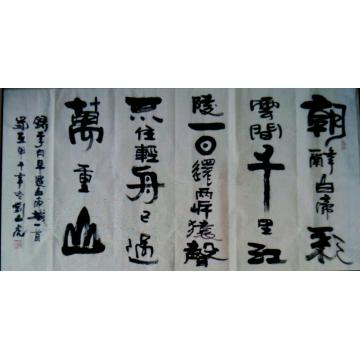 朝辞白帝彩
雲間千里江
陵一日還兩岸猿聲
不住輕舟已過
萬重山
錄李白早發白帝城一首